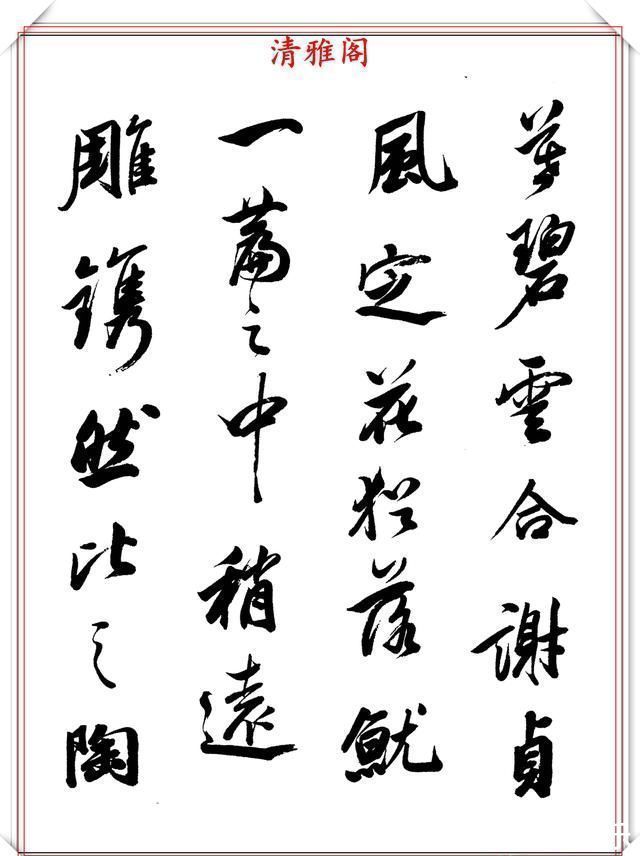 清雅阁
暮碧雲合謝貞
風定花猶落就
一篇之中稍遠
雕鐫然比之陶